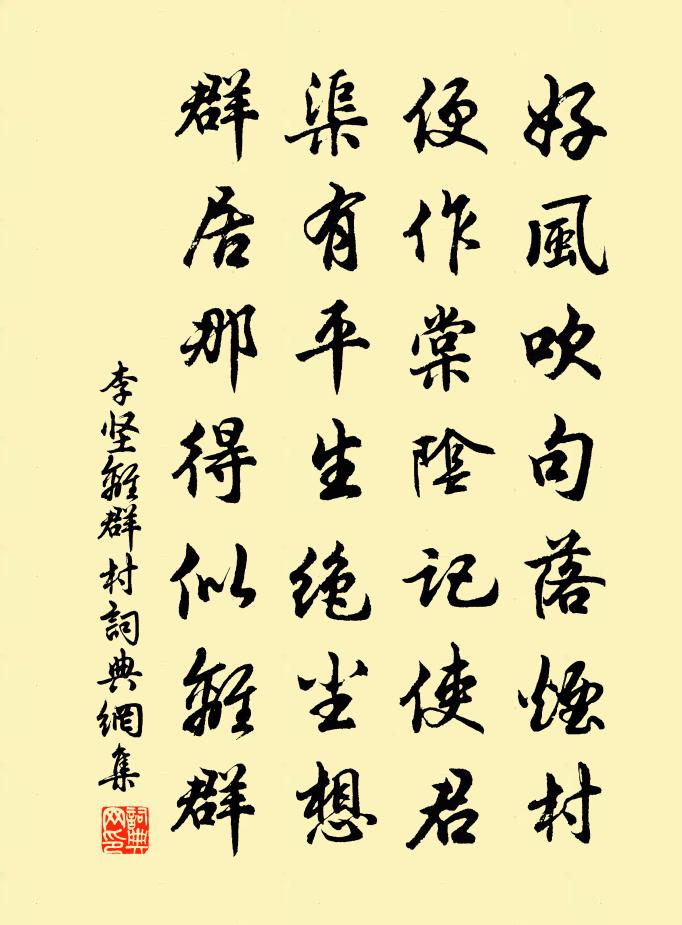 好風吹句落煙村
便作棠陰記使君
渠有平生絶尘想
群居那得似離群
李坚離群村詞典網集
詞典网印